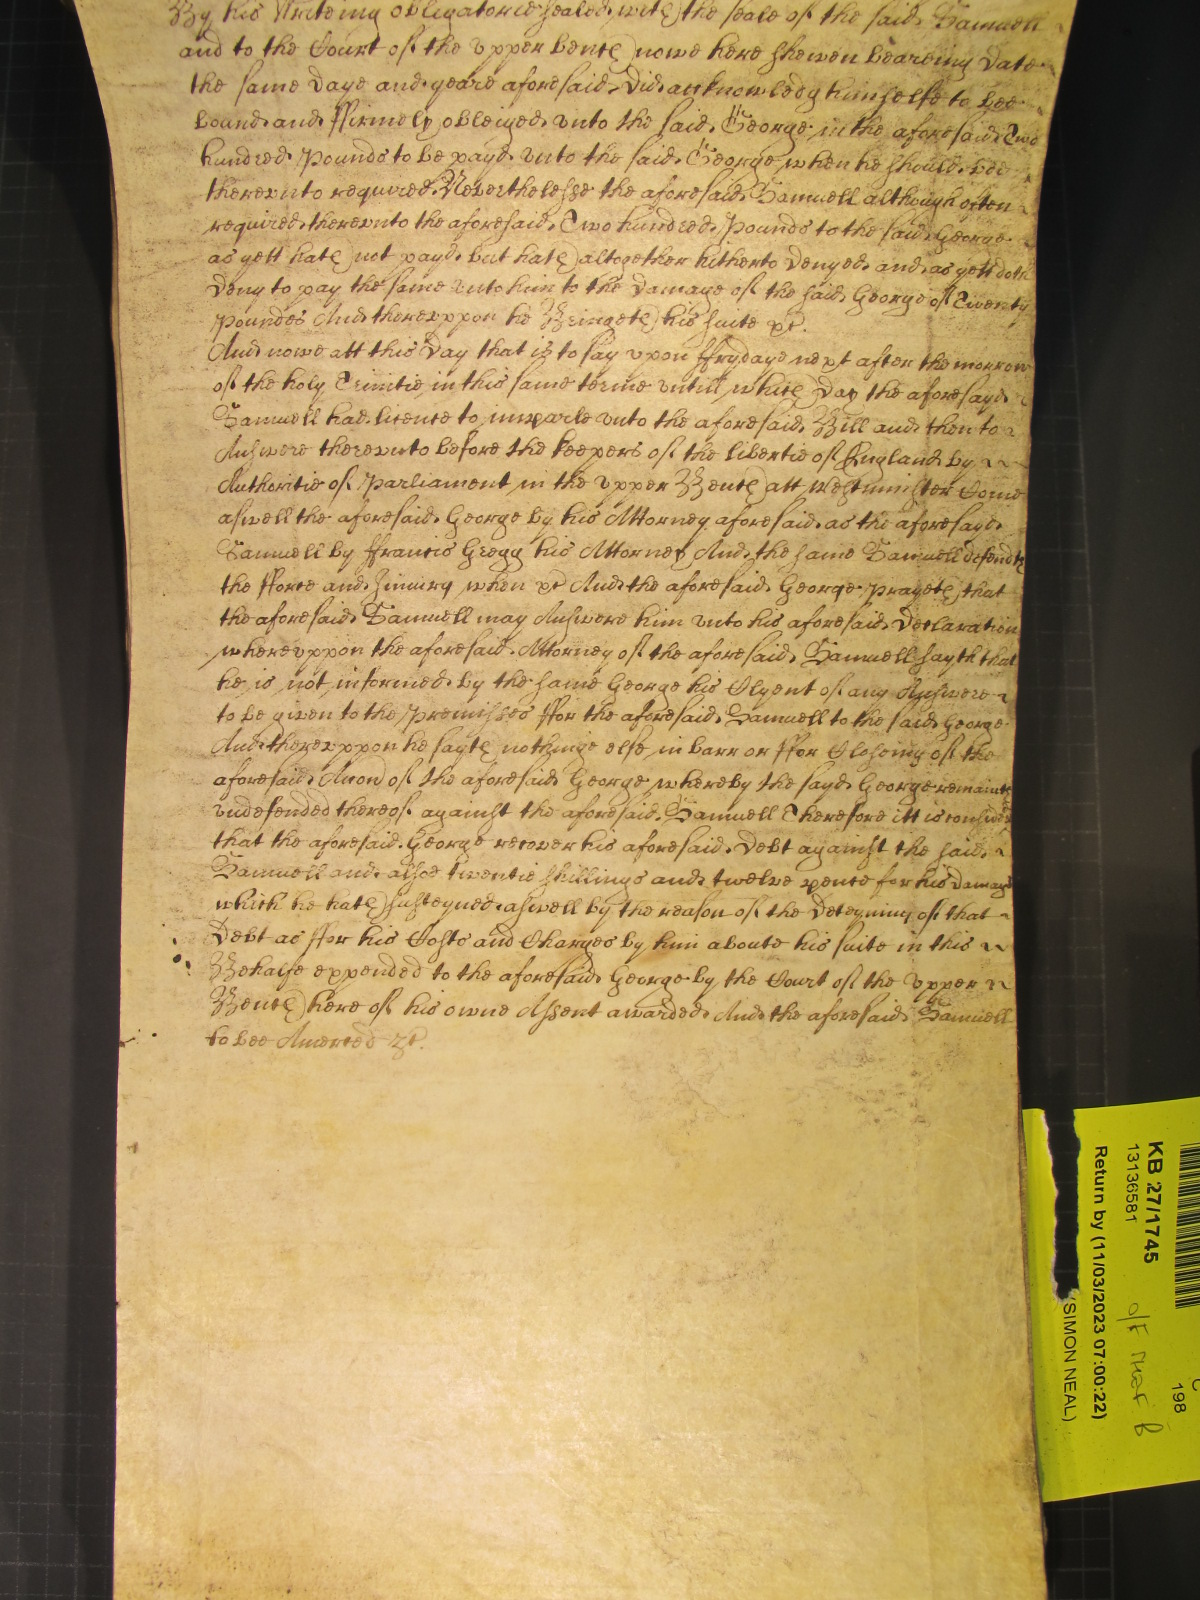 By his Writeing obligatorie sealed with the seale of the said Samuell
and to the Court of the vpper bench nowe here shewen beareing Date
the same Daye and yeare aforesaid Did acknowledg himselfe to bee
bound and ffirmely obleiged vnto the said George in the aforesaid Two
hundred Pounds to be payd vnto the said George when he should bee
therevnto required Neverthelesse the aforesaid Samuell although often
required therevnto the aforesaid Two hundred Pounds to the said George
as yett hath not payd but hath altogether hitherto Denyed and as yett doth
Deny to pay the same vnto him to the Damage of the said George of Twenty
Poundes And therevppon he Bringeth his suite &c.
And nowe att this Day that is to say vpon ffrydaye next after the morrow
of the holy Trinitie in this same terme vntill which Day the aforesayd
Samuell had licence to imparle vnto the aforesaid Bill and then to
Answere therevnto before the keepers of the libertie of England by
Authoritie of Parliament in the vpper Bench att Westminster Come
aswell the aforesaid George by his Attorney aforesaid as the aforesayd
Samuell by ffrancis Gregg his Attorney And the same Samuell defendth
the fforce and Iniury when &c And the aforesaid George prayeth that
the aforesaid Samuell may Answere him vnto his aforesaid Declaration
wherevppon the aforesaid Attorney of the aforesaid Samuell sayth that
he is not informed by the same George his Clyent of any Answere
to be given to the Premisses ffor the aforesaid Samuell to the said George
And therevppon he sayth nothinge else in barr or ffor Closeing of the
aforesaid Accon of the aforesaid George whereby the sayd George remaineth
vndefended thereof against the aforesaid Samuell Therefore itt is considered
that the aforesaid George recover his aforesaid Debt against the said
Samuell and alsoe twentie shillings and twelve pence for his Damags
which he hath susteyned aswell by the reason of the Deteyning of that
Debt as ffor his Costs and Charges by him aboute his suite in this
Behalfe expended to the aforesaid George by the Court of the vpper
Bench here of his owne Assent awarded And the aforesaid Samuell
to bee Amerced &c.
KB 27/1745
13136581
Return by (11/03/2023 07:00:22)
(SIMON NEAL)
198